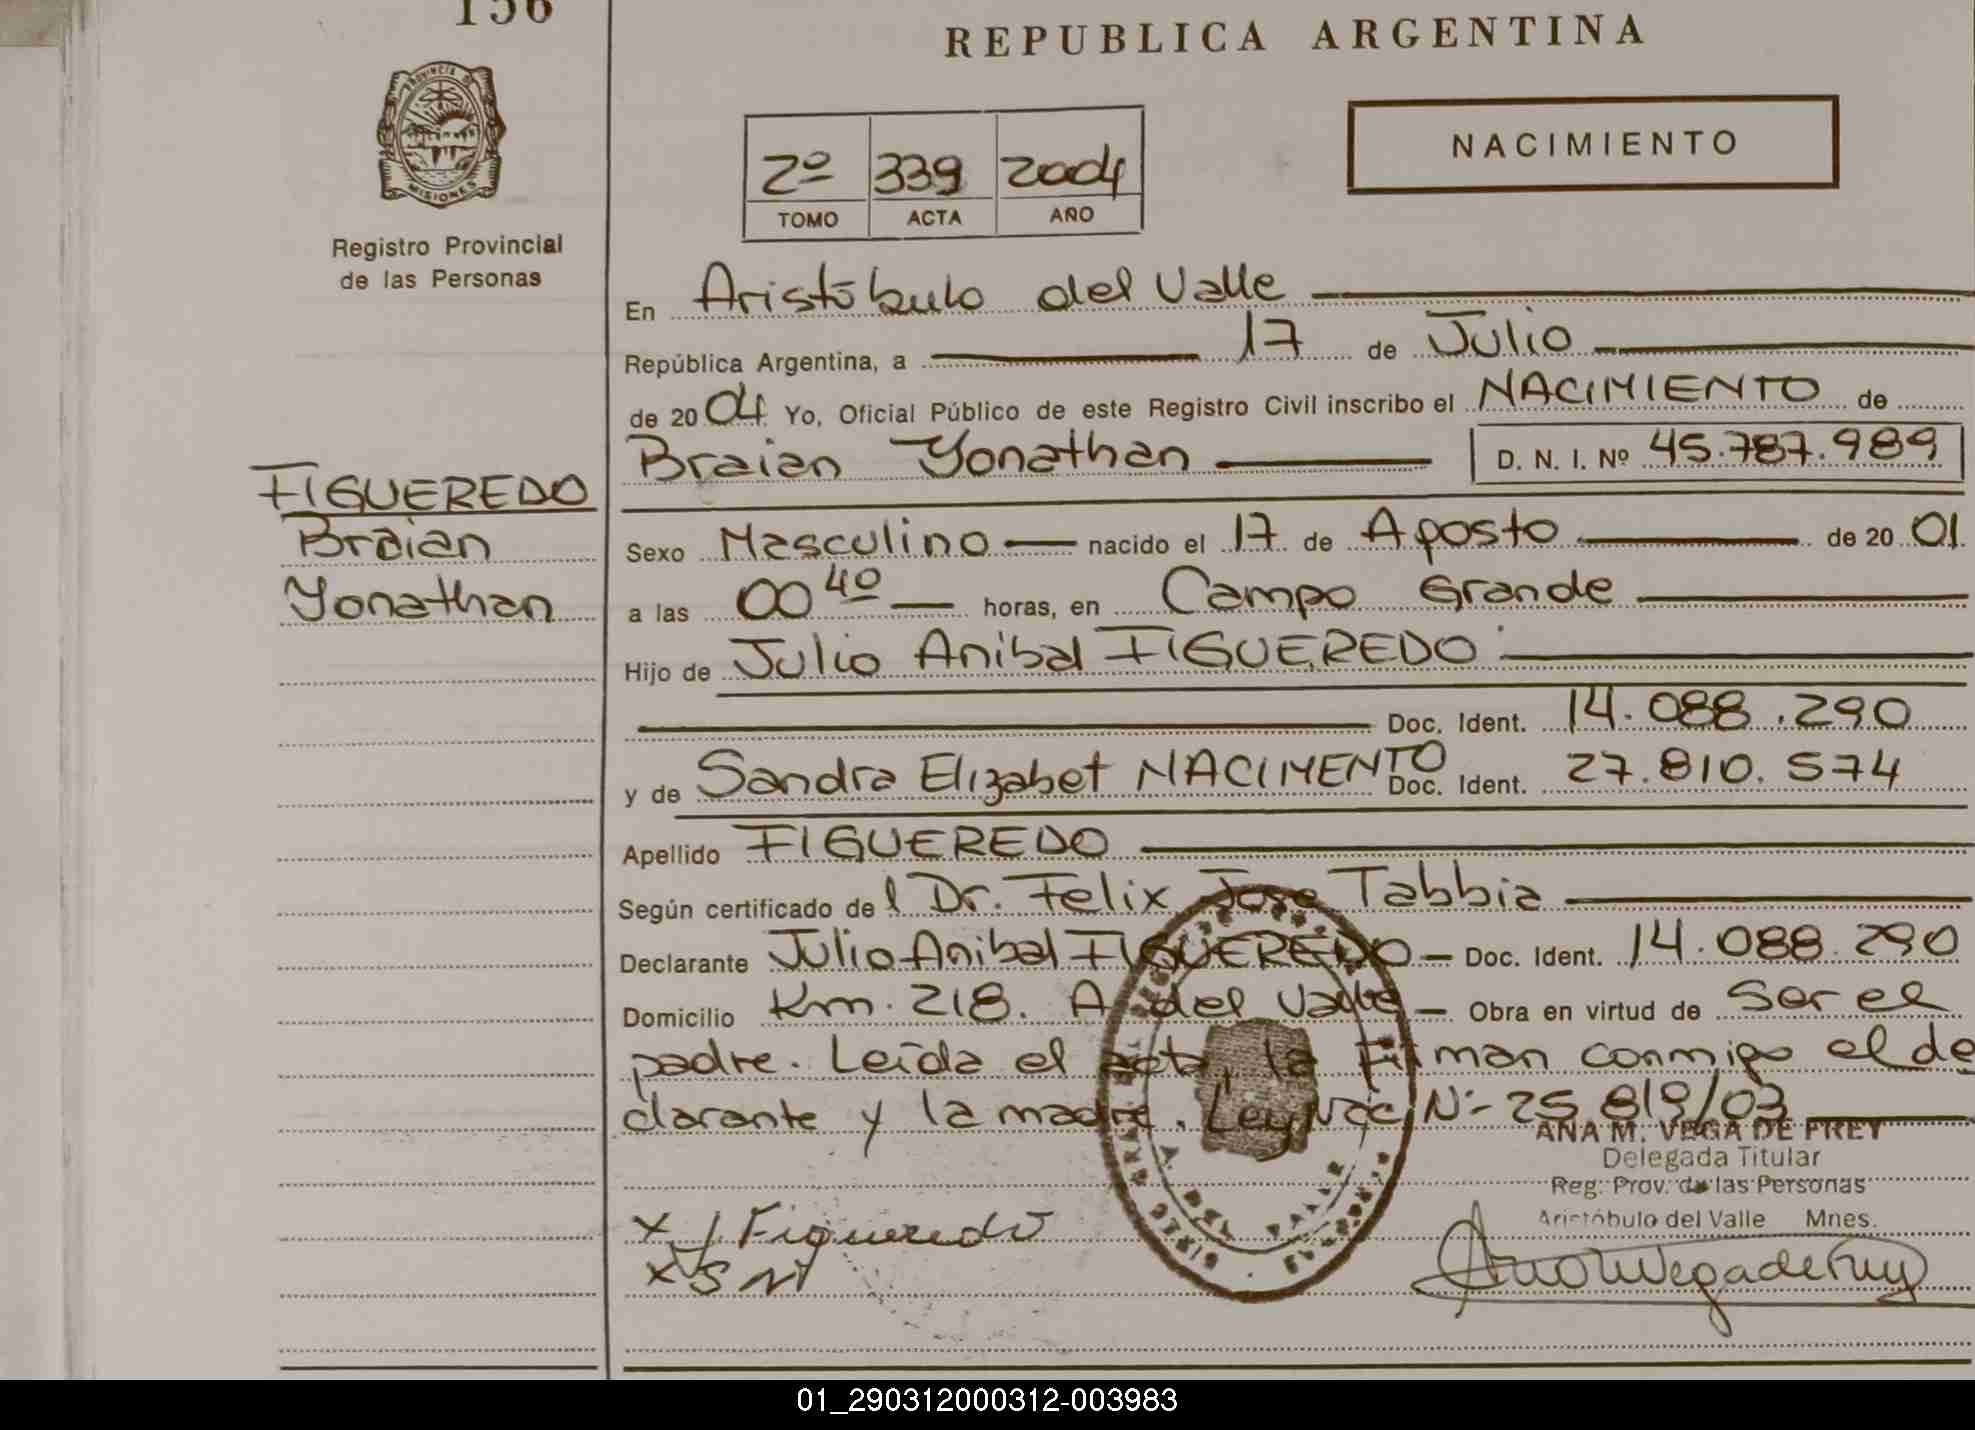 156
REPUBLICA ARGENTINA
PROVINCIA DE
MISIONES
Registro Provincial
de las Personas
2º 339 2004
TOMO ACTA AÑO
NACIMIENTO
En Aristóbulo del Valle
República Argentina, a 17 de Julio
de 2004 Yo, Oficial Público de este Registro Civil inscribo el NACIMIENTO de
Braian Yonathan D. N. I. Nº 45.787.989
FIGUEREDO
Braian
Yonathan
Sexo Masculino nacido el 17 de Agosto de 2001
a las 00 40 horas, en Campo Grande
Hijo de Julio Anibal FIGUEREDO
Doc. Ident. 14.088.290
y de Sandra Elizabet NACIMENTO Doc. Ident. 27.810.574
Apellido FIGUEREDO
Según certificado del Dr. Felix Jose Tabbia
Declarante Julio Anibal FIGUEREDO Doc. Ident. 14.088.290
Domicilio Km. 218. A del Valle Obra en virtud de Ser el
padre. Leída el acta, la firman conmigo el de
clarante y la madre. Ley Nac Nº 25.819/03
ANA M. VEGA DE FREY
Delegada Titular
Reg. Prov. de las Personas
Aristóbulo del Valle Mnes.
x J Figueredo
x S N
01_290312000312-003983